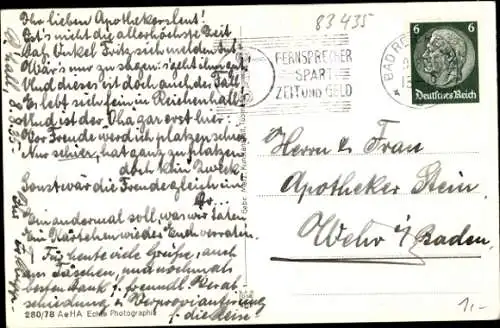 83 435
Ihr lieben Apothekersleut!
Ist's nicht die allerhöchste Zeit
daß Onkel Fritz sich melden tut
Wär's nur zu sagen: 's geht ihm gut!
Und dieses ist doch auch der Fall
Er lebt sich fein in Reichenhall
Und ist der Oha gar erst hier:
Vor Freude werd ich platzen schier
Nur schier, hat ganz zu platzen
doch kein Zweck
Sonst wär die Freude gleich im
Dr...
Ein andermal soll, was wir taten
Ein Kärtchen wieder Euch verraten.
Für heute viele Grüße, auch
am Täschen, und nochmals
besten Dank f. freundl. Verab-
schiedung u. Verproviantierung
f. die Reise
8.3.35
280/78 AeHA Echte Photographie
FERNSPRECHER
SPART
ZEIT UND GELD
BAD RE
6 6
Deutsches Reich
Herrn u. Frau
Apotheker Stein
Wehr i/Baden
1,-